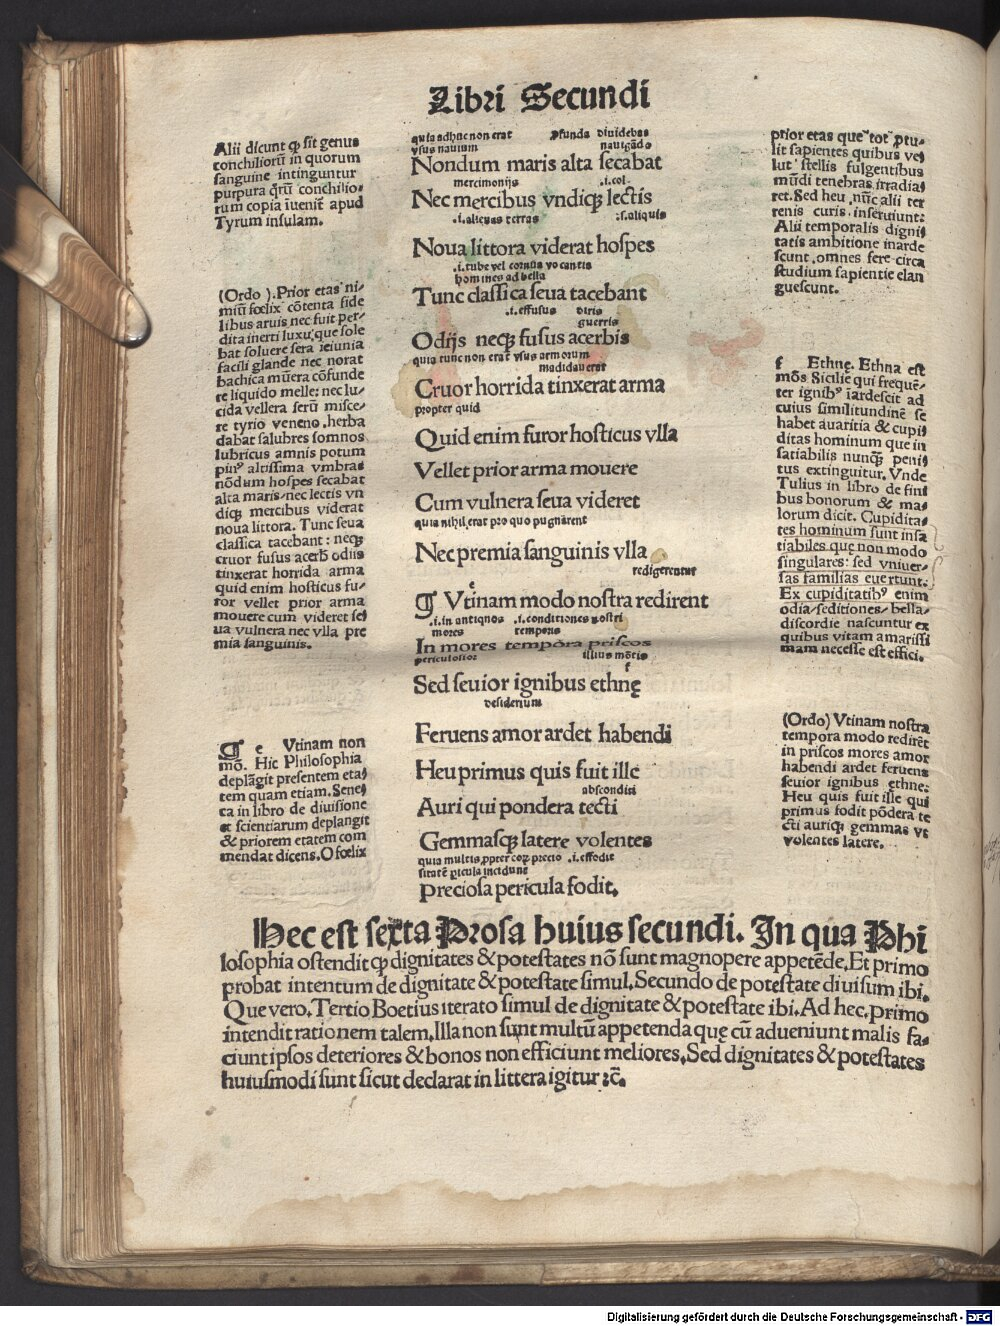 Libri Secundi
Alii dicunt ꝙ sit genus
conchilioru̅ in quorum
sanguine intinguntur
purpura q̅ru̅ conchilio⸗
rum copia iuenit̅ apud
Tyrum insulam.
(Ordo). Prior etas ni⸗
miu̅ fœlix co̅tenta fide
libus aruis nec fuit per⸗
dita inerti luxu, que sole
bat soluere sera ieiunia
facili glande nec norat
bachica mu̅era co̅funde
re liquido melle: nec lu⸗
cida vellera seru̅ misce⸗
re tyrio veneno. herba
dabat salubres somnos
lubricus amnis potum
pinꝰ altissima vmbras
no̅dum hospes secabat
alta maris⸗nec lectis vn
diqꝫ mercibus viderat
noua littora. Tunc seua
classica tacebant: neqꝫ
cruor fusus acerb odiis
tinxerat horrida arma
quid enim hosticus fu⸗
ror vellet prior arma
mouere cum videret se
ua vulnera nec vlla pre
mia sanguinis.
¶ e Vtinam non
mo̅. Hic Philosophia
depla̅git presentem eta⸗
tem quam etiam. Sene
ca in libro de diuisione
et scientiarum deplangit
& priorem etatem com
mendat dicens. O fœlix
quia adhuc non erat ꝓfunda diuidebas
vsus nauium nauiga̅do
Nondum maris alta secabat
mercimonijs .i.col⸗
Nec mercibus vndiqꝫ lectis
.i.alienas terras .s.aliquis
Noua littora viderat hospes
.i.tube vel cornua vocantia
homines ad bella
Tunc classica seua tacebant
.i.effusus diris
guerris
Odijs neqꝫ fusus acerbis
quia tunc non erat vsus armorum
madidauerat
Cruor horrida tinxerat arma
propter quid
Quid enim furor hosticus vlla
Vellet prior arma mouere
Cum vulnera seua videret
quia nihil erat pro quo pugnarent
Nec premia sanguinis vlla
redigerentur
e
¶ Vtinam modo nostra redirent
.i.in antiquos .i.conditiones nostri
mores temporis
In mores tempora priscos
periculosior illius mo̅tis
f
Sed seuior ignibus ethnę
desiderium
Feruens amor ardet habendi
Heu primus quis fuit ille
absconditi
Auri qui pondera tecti
Gemmasqꝫ latere volentes
quia multis ꝓpter eoꝝ precio .i.effodit
sitate̅ pericula incidunt
Preciosa pericula fodit.
prior etas que tot ꝓtu⸗
lit sapientes quibus ve
lut stellis fulgentibus
mu̅di tenebras irradia⸗
ret. Sed heu nu̅c alii ter
renis curis inseruiunt:
Alii temporalis digni
tatis ambitione inarde
scunt, omnes fere circa
studium sapientie elan
guescunt.
f Ethne. Ethna est
mo̅s Sicilię qui freque̅⸗
ter ignibꝰ i̅ardescit ad
cuius similitudine̅ se
habet auaritia & cupi
ditas hominum que in
satiabilis nunqꝫ peni
tus extinguitur. Vnde
Tulius in libro de fini
bus bonorum & ma⸗
lorum dicit. Cupidita⸗
tes hominum sunt insa
tiabiles quę non modo
singulares: sed vniuer⸗
sas familias euertunt.
Ex cupiditatibꝰ enim
odia⸗seditiones⸗bella⸗
discordie nascuntur ex
quibus vitam amarissi
mam necesse est effici.
(Ordo) Vtinam nostra
tempora modo redire̅t
in priscos mores amor
habendi ardet feruens
seuior ignibus ethne:
Heu quis fuit ille qui
primus fodit po̅dera te
cti auriqꝫ gemmas vt
volentes latere.
Hec est sexta Prosa huius secundi. In qua Phi
losophia ostendit ꝙ dignitates & potestates no̅ sunt magnopere appete̅de, Et primo
probat intentum de dignitate & potestate simul. Secundo de potestate diuisum ibi.
Que vero. Tertio Boetius iterato simul de dignitate & potestate ibi. Ad hec, primo
intendit rationem talem. Illa non sunt multu̅ appetenda quę cu̅ adueniunt malis fa⸗
ciunt ipsos deteriores & bonos non efficiunt meliores. Sed dignitates & potestates
huiusmodi sunt sicut declarat in littera igitur ⁊c̅.
Digitalisierung gefördert durch die Deutsche Forschungsgemeinschaft - DFG